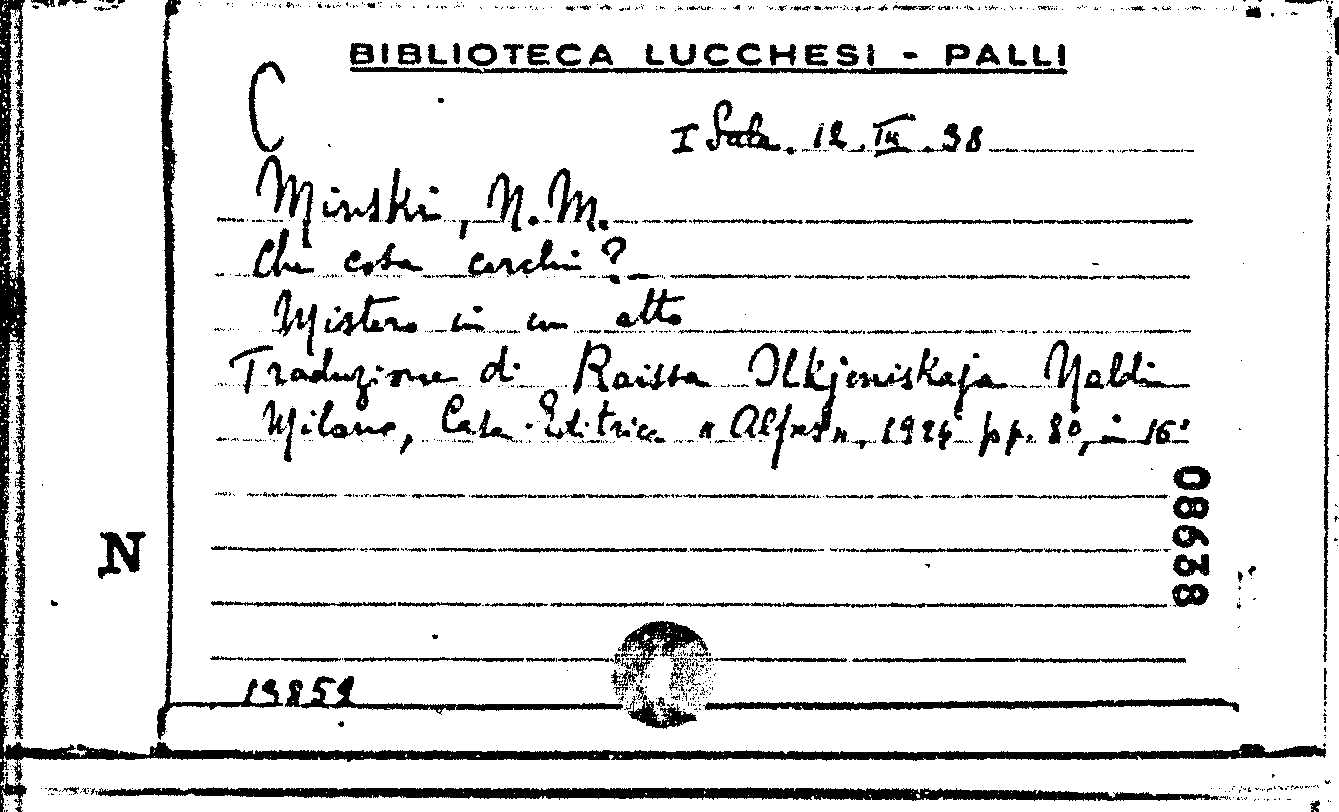 BIBLIOTECA LUCCHESI - PALLI
C
I Sala. 12. III. 38
Minski, N. M.
Che cosa cerchi?
Mistero in un atto
Traduzione di Raissa Olkjeniskaja Naldi
Milano, Casa Editrice "Alpes", 1924 pp. 80, in 16°
08638
N
19852